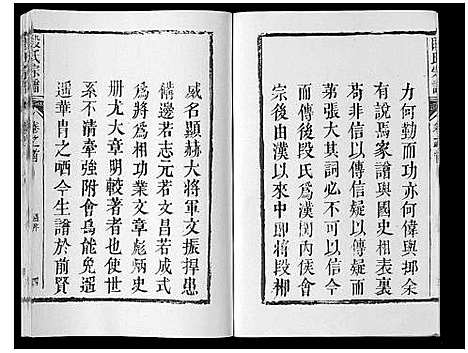 力何勤而功亦何偉與邦余
有說焉家譜與國史相表裏
苟非信以傳信疑以傳疑而
第張大其詞必不可以信今
而傳後段氏為漢關內侯會
宗後由漢以來中即將段郴
段氏宗譜
卷之首
威名顯赫大將軍文振捍患
備邊若志元若文昌若成式
為將為相功業文章彪炳史
册尤大章明較著者也使世
系不清牽強附會烏能免遥
遥華胄之哂今生譜於前賢